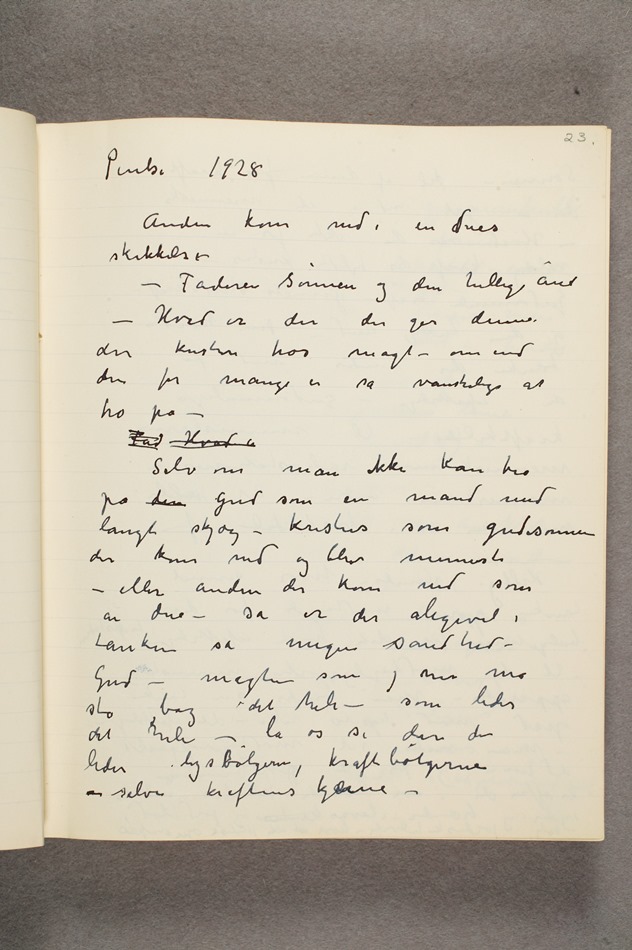 23.
Pintse 1928
Anden kom ned i en dues
skikkelse
– Faderen Sønnen og den hellige ånd
– Hvad er det der gør denne
den kristne tros magt – om end
den for mange er så vanskelig at
tro på –
Fad Hvad e
Selv om man ikke kan tro
på den Gud som en mand med
langt skjæg – Kristus som gudesønnen
der kom ned og blev menneske
– eller anden der kom ned som
en due – så er der aligevel i
tanken så megen sandhed –
Gud – magten som jo må
stå bag det hele – som leder
det hele – la os si den der
leder lysbølgerne, kraftbølgerne
selve kraftens kjerne –